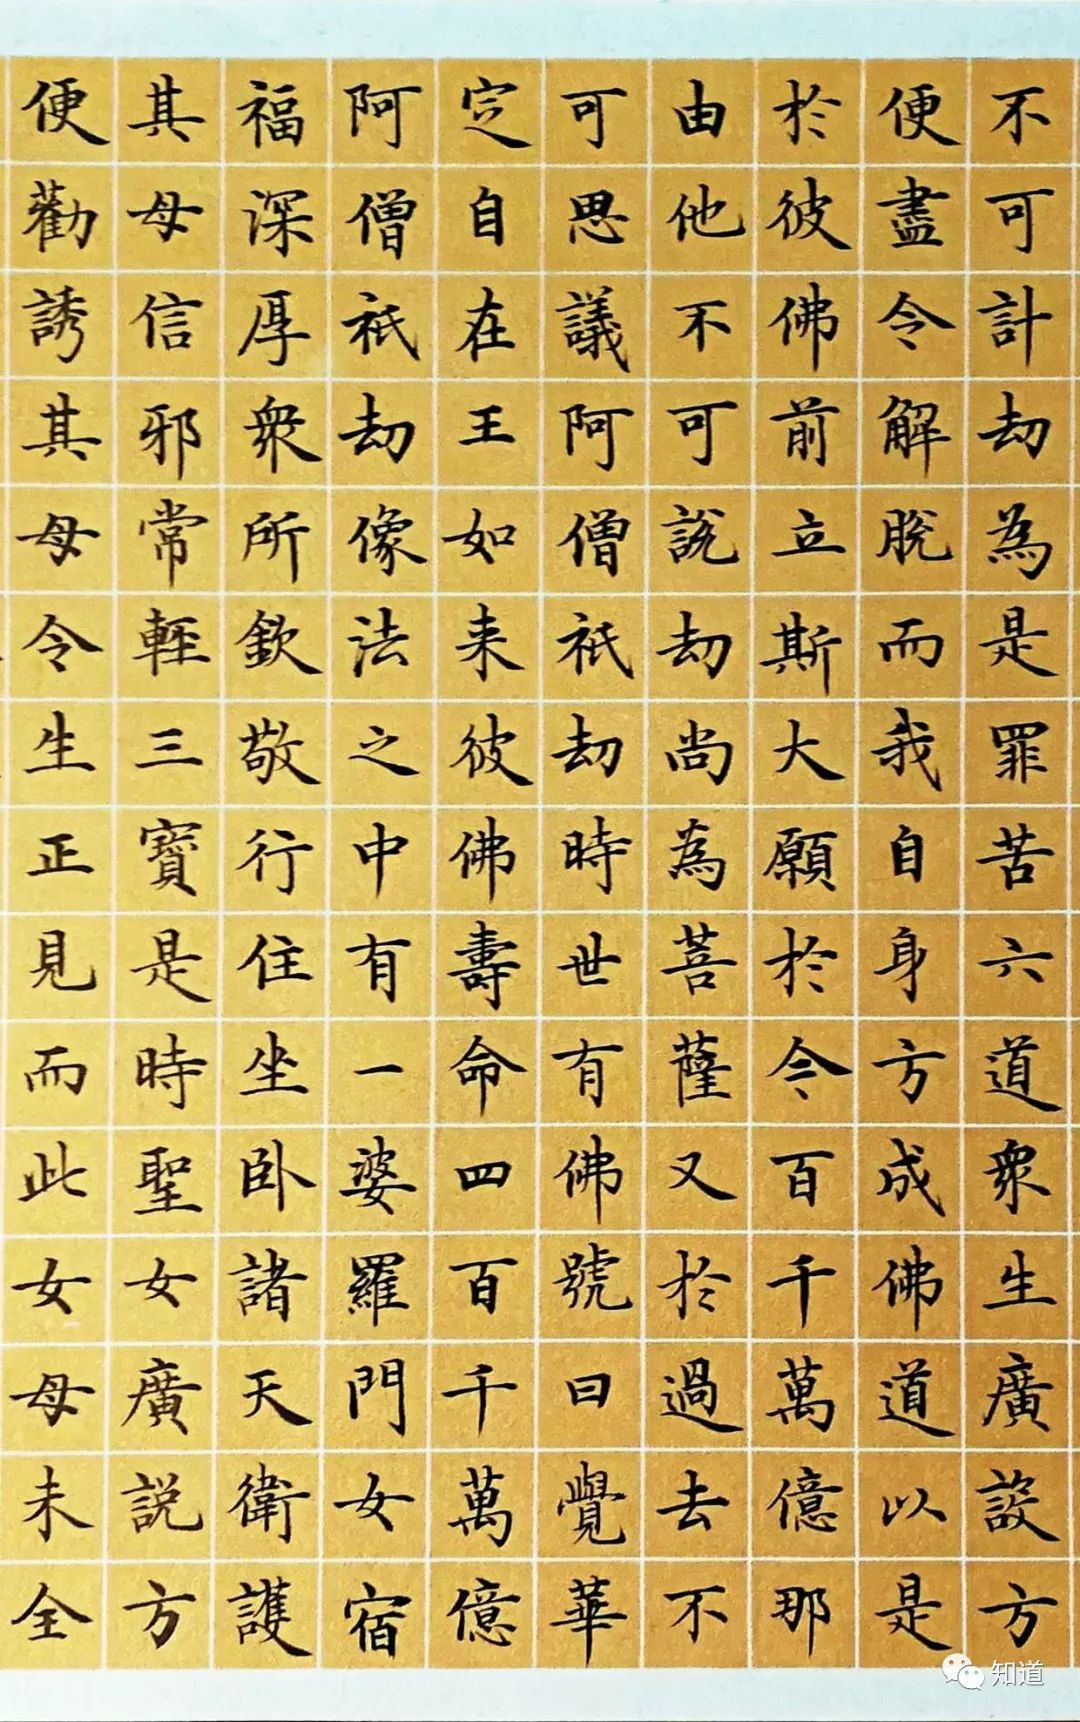 不可計劫為是罪苦六道眾生廣設方
便盡令解脫而我自身方成佛道以是
於彼佛前立斯大願於今百千萬億那
由他不可說劫尚為菩薩又於過去不
可思議阿僧祇劫時世有佛號曰覺華
定自在王如来彼佛壽命四百千萬億
阿僧祇劫像法之中有一婆羅門女宿
福深厚眾所欽敬行住坐卧諸天衛護
其母信邪常輕三寶是時聖女廣説方
便勸誘其母令生正見而此女母未全
知道